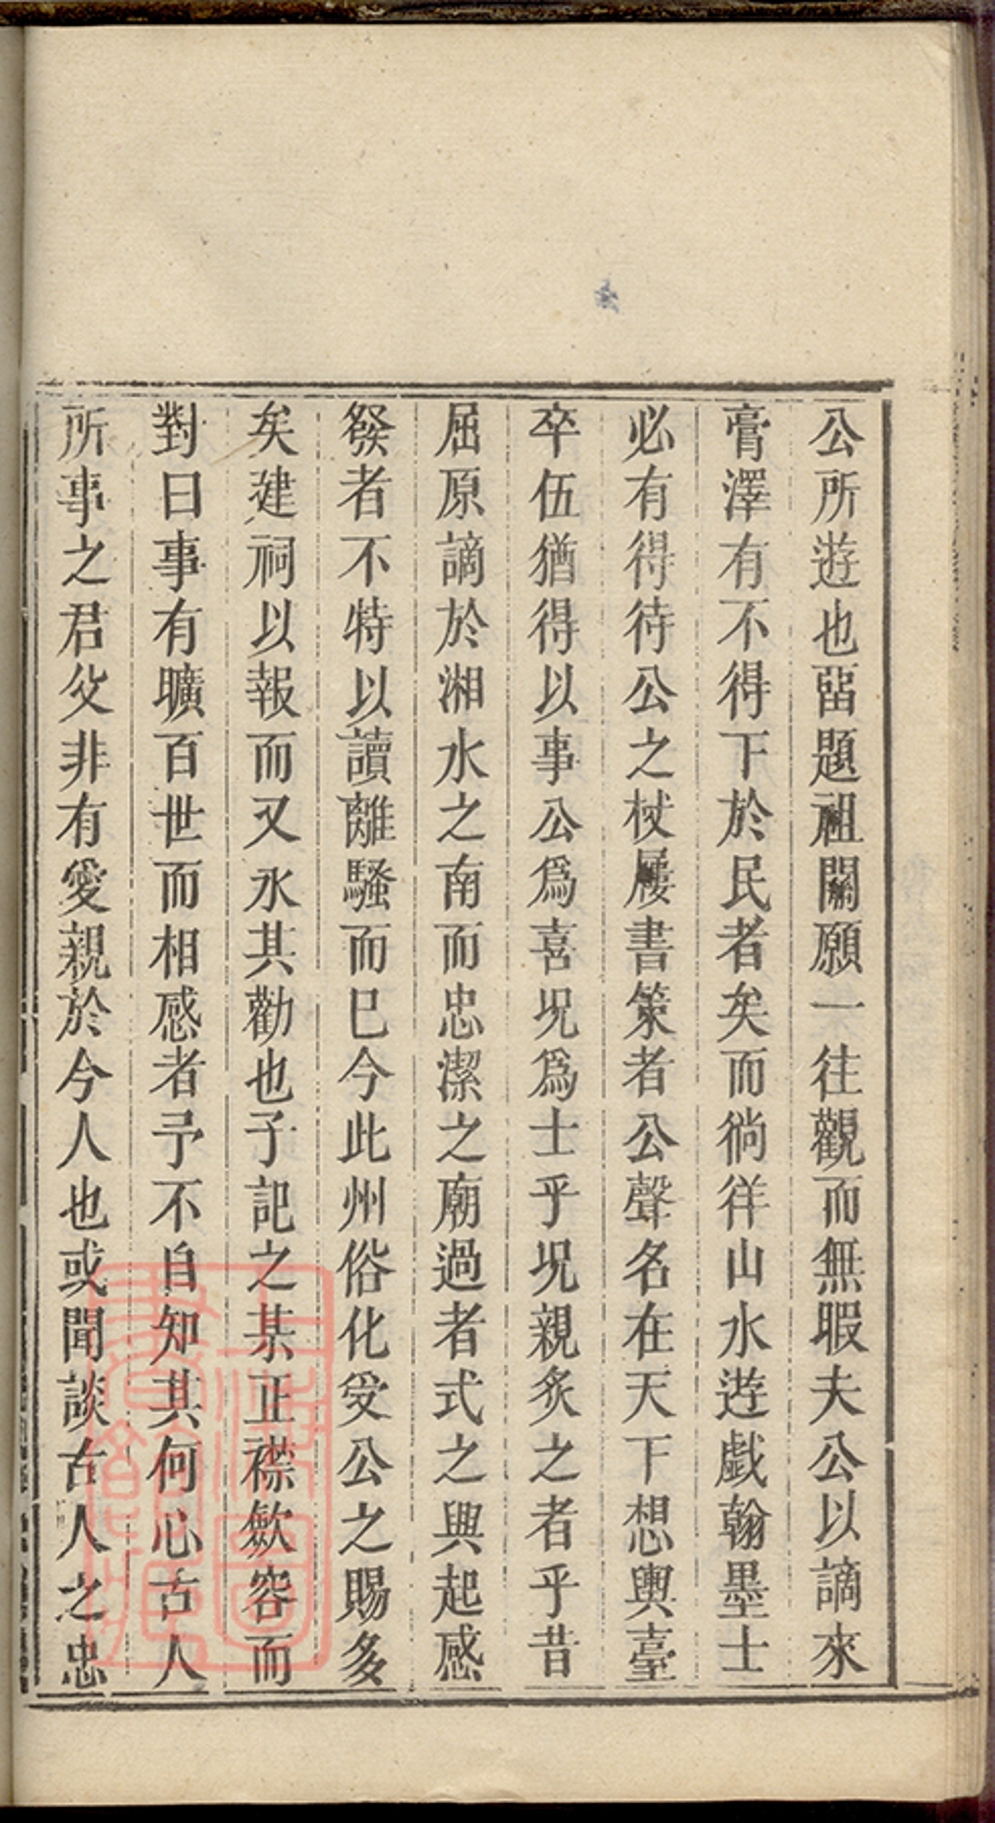 公所遊也畱題祖關願一往觀而無暇夫公以謫來
膏澤有不得下於民者矣而徜徉山水遊戱翰墨士
必有得待公之杖屨書策者公聲名在天下想輿臺
卒伍猶得以事公爲喜況爲士乎況親炙之者乎昔
屈原謫於湘水之南而忠潔之廟過者式之興起感
發者不特以讀離騷而巳今此州俗化受公之賜多
矣建祠以報而又永其勸也子記之某正襟歛容而
對曰事有曠百世而相感者予不自知其何心古人
所事之君父非有愛親於今人也或聞談古人之忠